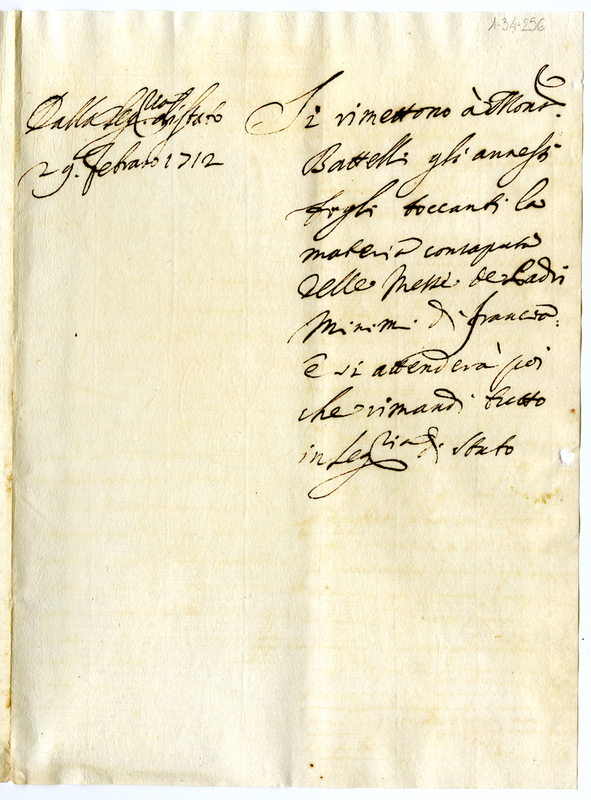 1-34-256
Dalla Seg.ria di Stato
29. febraro 1712
Si rimettono à Mons.r
Battelli gli annessi
fogli toccanti la
materia consaputa
delle Messe de Padri
Minimi di Francia:
e si attenderà poi
che rimandi tutto
in Seg.ria di Stato